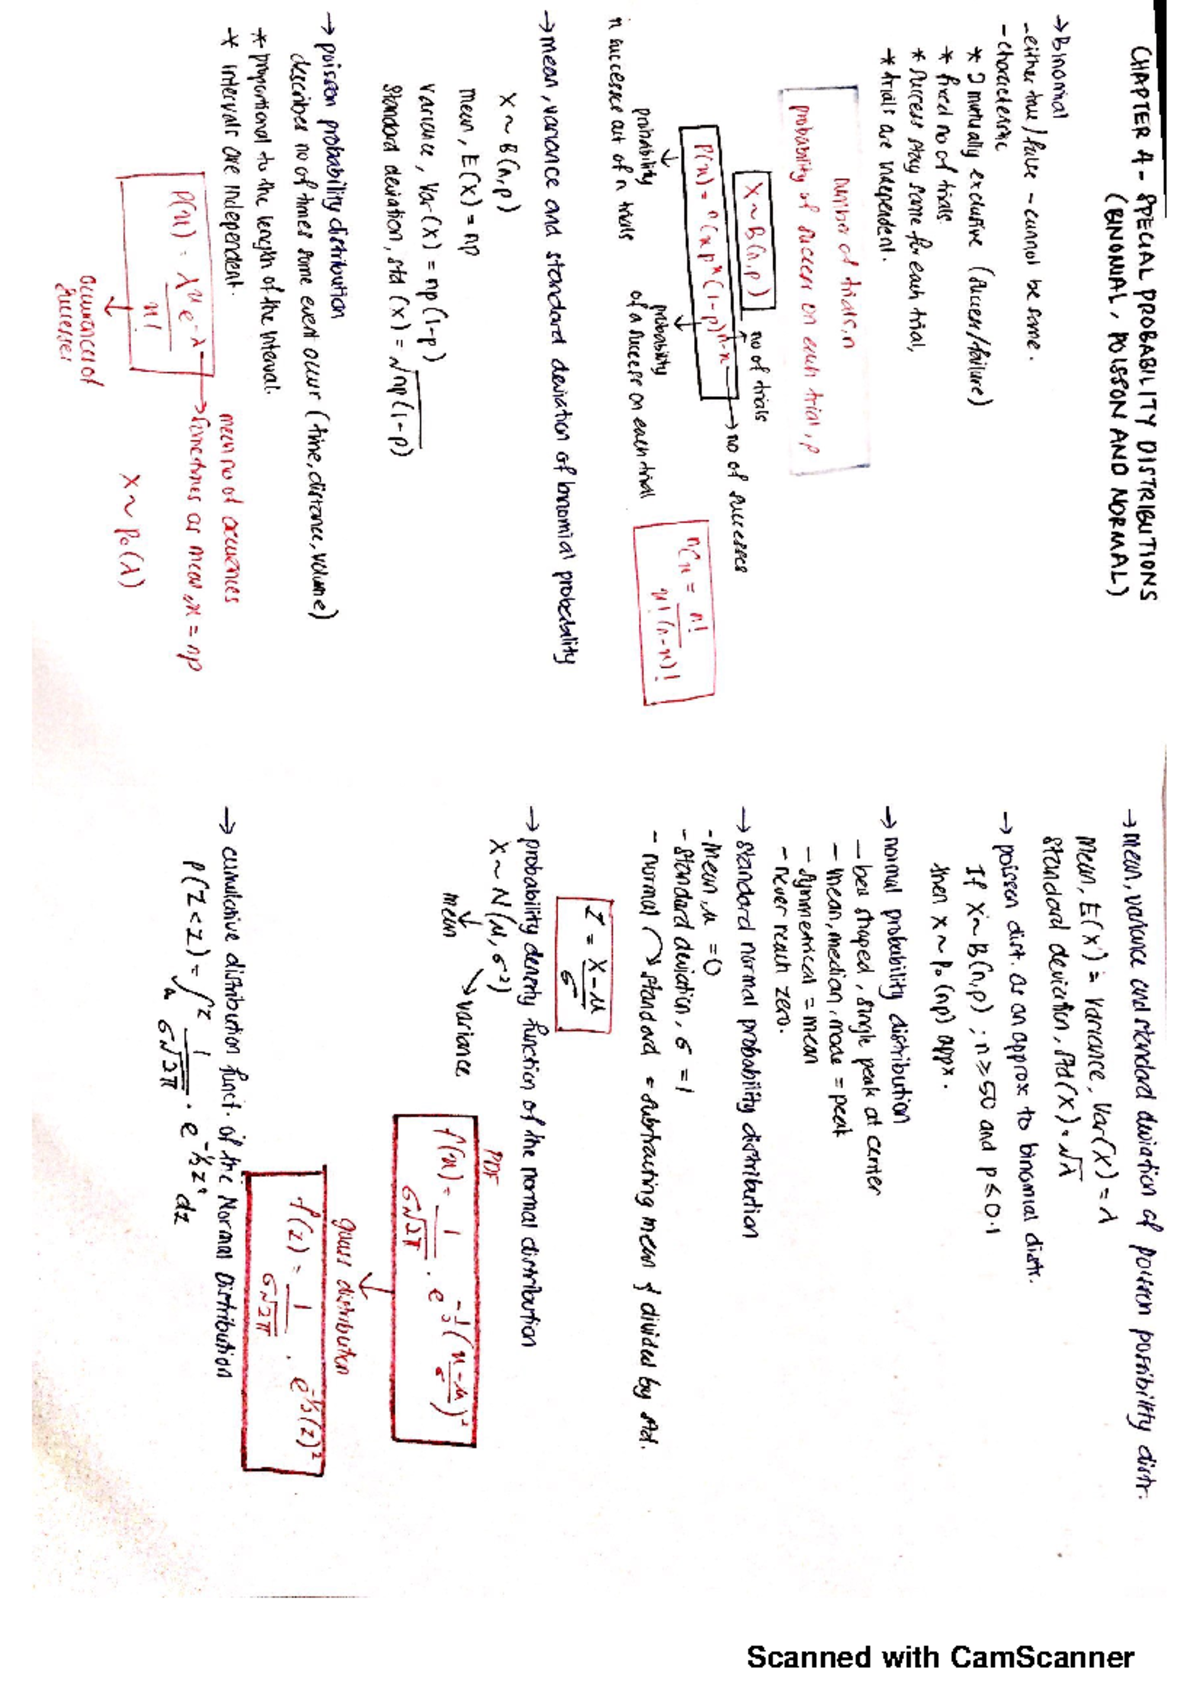 CHAPTER 4 - SPECIAL PROBABILITY DISTRIBUTIONS
(BINOMIAL, POISSON AND NORMAL)
→ Binomial
- either true/false - cannot be same.
- characteristic
* 2 mutually exclusive (success/failure)
* fixed no of trials
* success stay same for each trial,
* trials are independent.
number of trials, n
probability of success on each trial, p
X ~ B(n,p)
no of trials
P(x) = ⁿCx pˣ(1-p)ⁿ⁻ˣ → no of successes
probability
n successes out of n trials
probability
of a success on each trial
ⁿCx = n! / x!(n-x)!
→ mean, variance and standard deviation of binomial probability
X ~ B(n,p)
mean, E(x) = np
variance, Var(X) = np(1-p)
standard deviation, std(X) = √np(1-p)
→ poisson probability distribution
describes no of times some event occur (time, distance, volume)
* proportional to the length of the interval.
* intervals are independent.
mean no of occurences
P(x) = λˣ e^-λ / x! → sometimes as mean, x = np
occurences of
successes
X ~ P₀(λ)
→ mean, variance and standard deviation of poisson possibility distr.
Mean, E(X) = variance, Var(X) = λ
standard deviation, std(X) = √λ
→ poisson distr. as an approx to binomial distr.
If X ~ B(n,p) ; n ≥ 50 and p ≤ 0.1
then X ~ P₀(np) appx.
→ normal probability distribution
- bell shaped, single peak at center
- mean, median, mode = peak
- symmetrical = mean
- never reach zero.
→ standard normal probability distribution
- Mean, μ = 0
- standard deviation, σ = 1
- normal → standard = subtracting mean & divided by std.
Z = X-μ / σ
→ probability density function of the normal distribution
X ~ N(μ, σ²)
mean
variance
PDF
f(x) = 1 / σ√2π · e^-½(x-μ / σ)²
gauss distribution
f(z) = 1 / σ√2π · e^-½(z)²
→ cumulative distribution funct. of the Normal Distribution
P(Z<z) = ∫ 1 / σ√2π · e^-½z² dz
Scanned with CamScanner